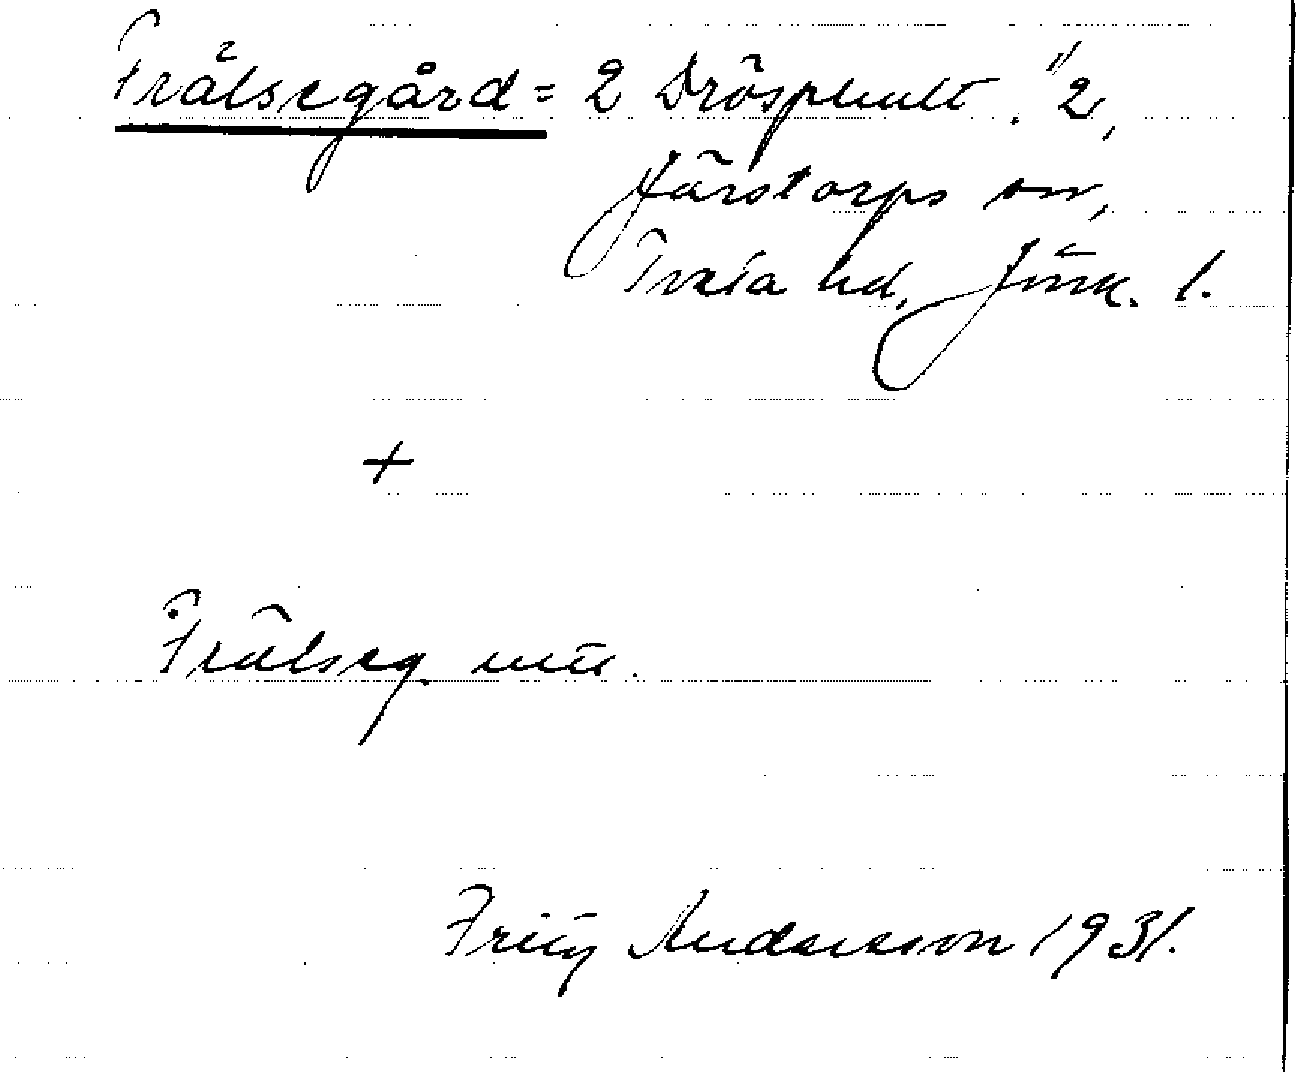 Frälsegård = 2 Drösphult. "2,
Järstorps sn,
Tveta hd, Jönk. l.
+
Frälseg.
Fritz Andersson 1931.